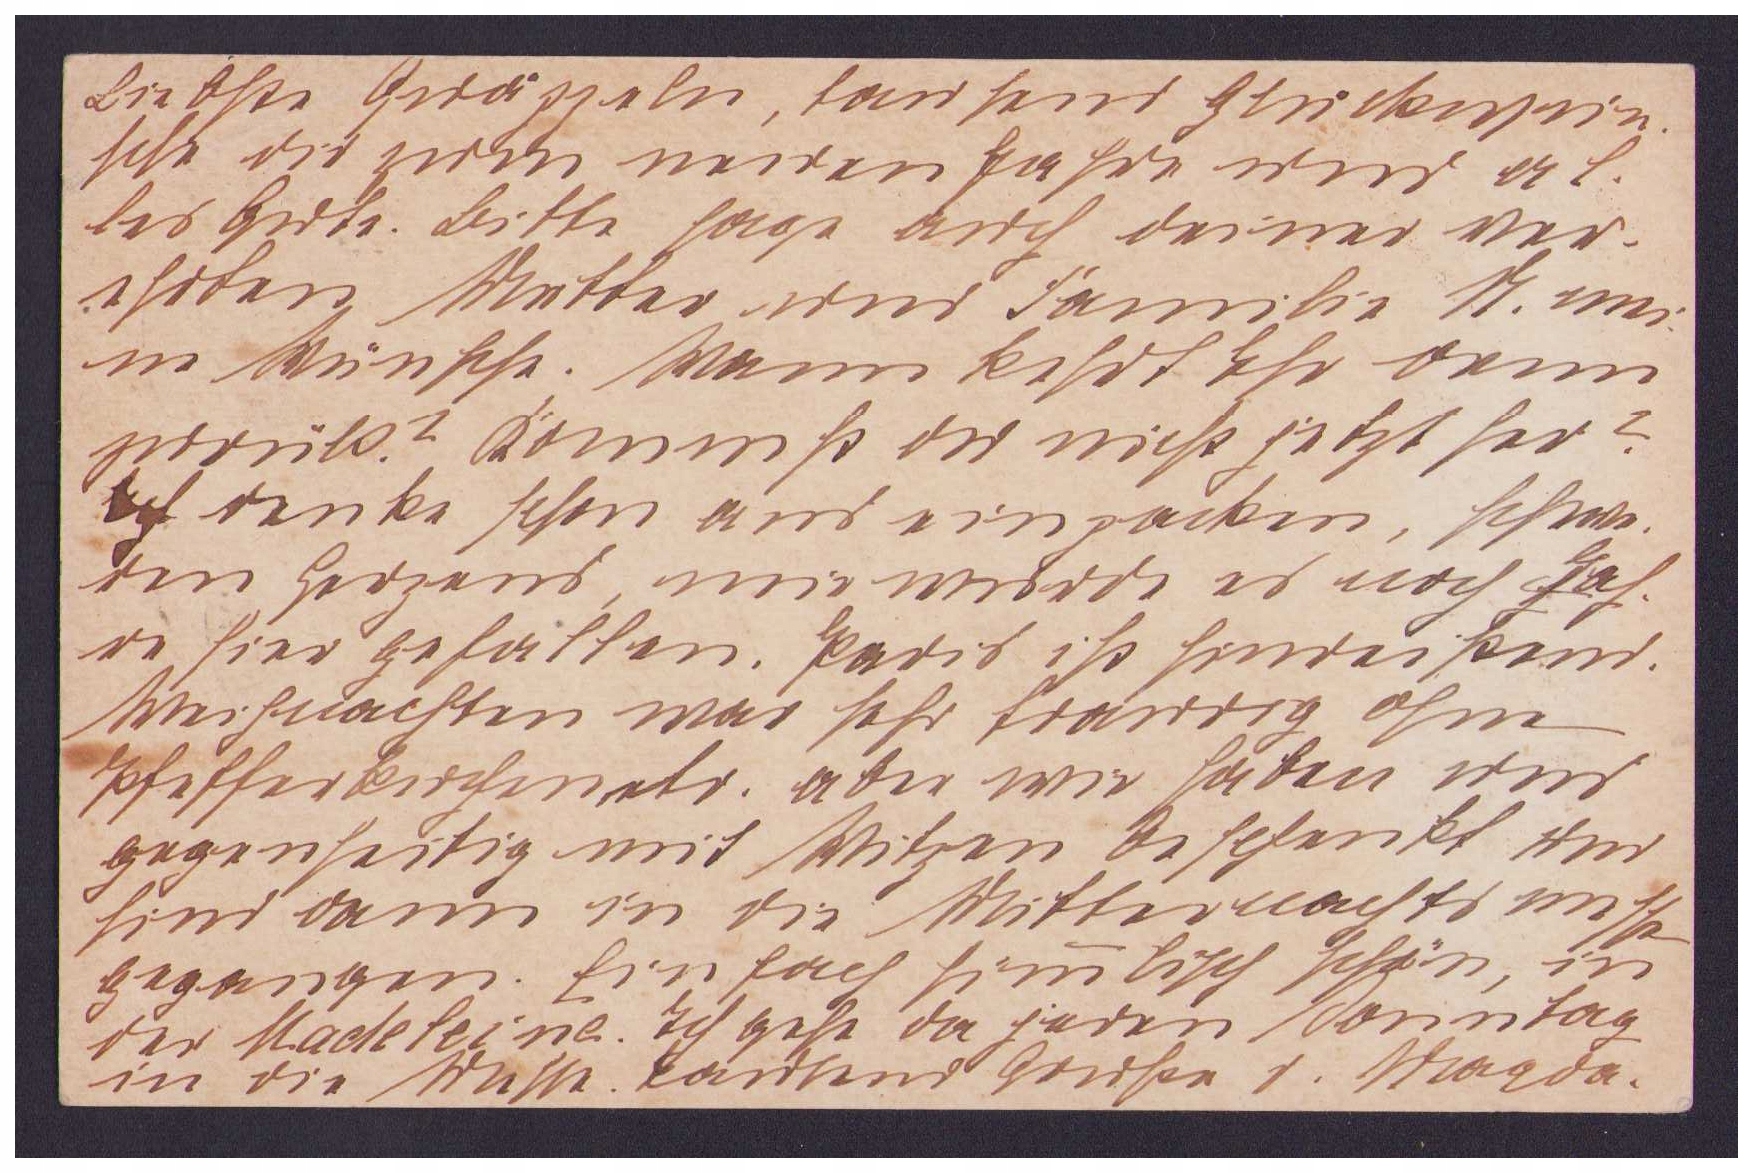 Liebste Geräppeln, tausend Glückwün-
sche dir zum neuen Jahre und al-
les Gute. Bitte sage auch deiner ver-
ehrten Mutter und Familie K. mei-
ne Wünsche. Wann kehrt Ihr denn
zurück? Kommst du nicht jetzt her?
Ich denke schon ans einpacken, schwe-
ren Herzens, mir würde es noch Jah-
re hier gefallen. Paris ist hinreißend.
Weihnachten war sehr traurig ohne
Pfefferkuchen etc. aber wir haben uns
gegenseitig mit Witzen beschenkt und
sind dann in die Mitternachtsmesse
gegangen. Einfach himmlisch schön, in
der Madeleine. Ich gehe da jeden Sonntag
in die Messe. Tausend Grüße d. Magda.